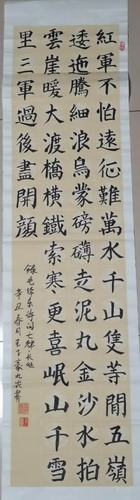 紅軍不怕遠征難萬水千山隻等閒五嶺
逶迤騰細浪烏蒙磅礴走泥丸金沙水拍
雲崖暖大渡橋橫鐵索寒更喜岷山千雪
里三軍過後盡開顏
錄毛澤東詩詞七律長征
辛丑春月